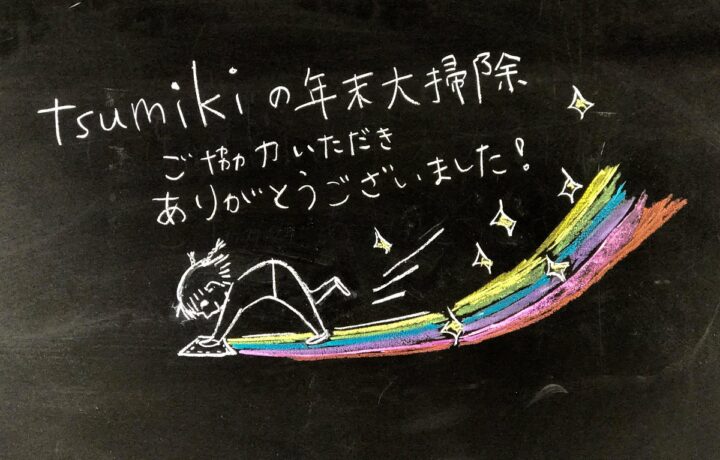 tsumikiの年末大掃除
ご協力いただき
ありがとうございました!